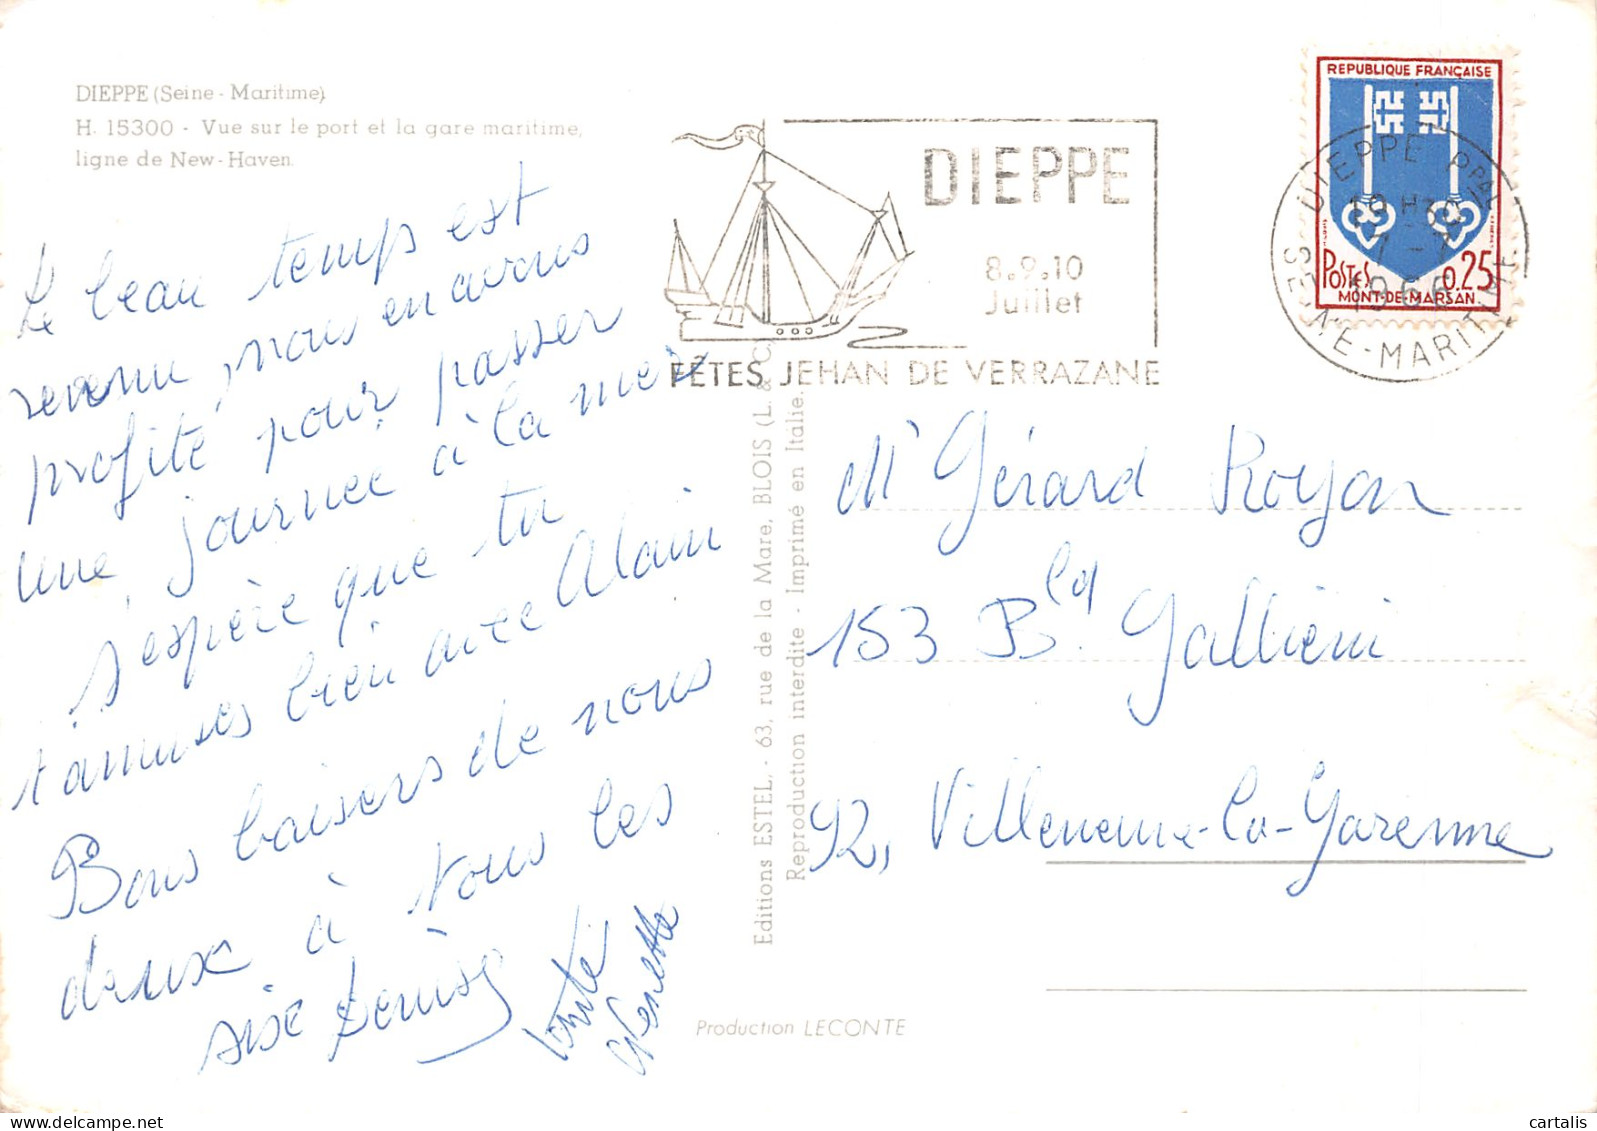 DIEPPE (Seine - Maritime)
H. 15300 - Vue sur le port et la gare maritime,
ligne de New-Haven.
Le beau temps est
revenu, nous en avons
profité pour passer
une journée à la mer
J'espère que tu
t'amuses bien avec Alain
Bons baisers de nous
deux à vous les
six Denise
DIEPPE
8.9.10
Juillet
FÊTES JEHAN DE VERRAZANE
REPUBLIQUE FRANÇAISE
POSTES 0.25
MONT-DE-MARSAN
DIEPPE PPAL
19 H30
1 - 7
1966
SEINE-MARITIME
Editions ESTEL, - 63, rue de la Mare, BLOIS (L. & C.)
Reproduction interdite - Imprimé en Italie.
Mr Gérard Royan
153 Bld Galliéni
92, Villeneuve-la-Garenne
Production LECONTE
cartalis